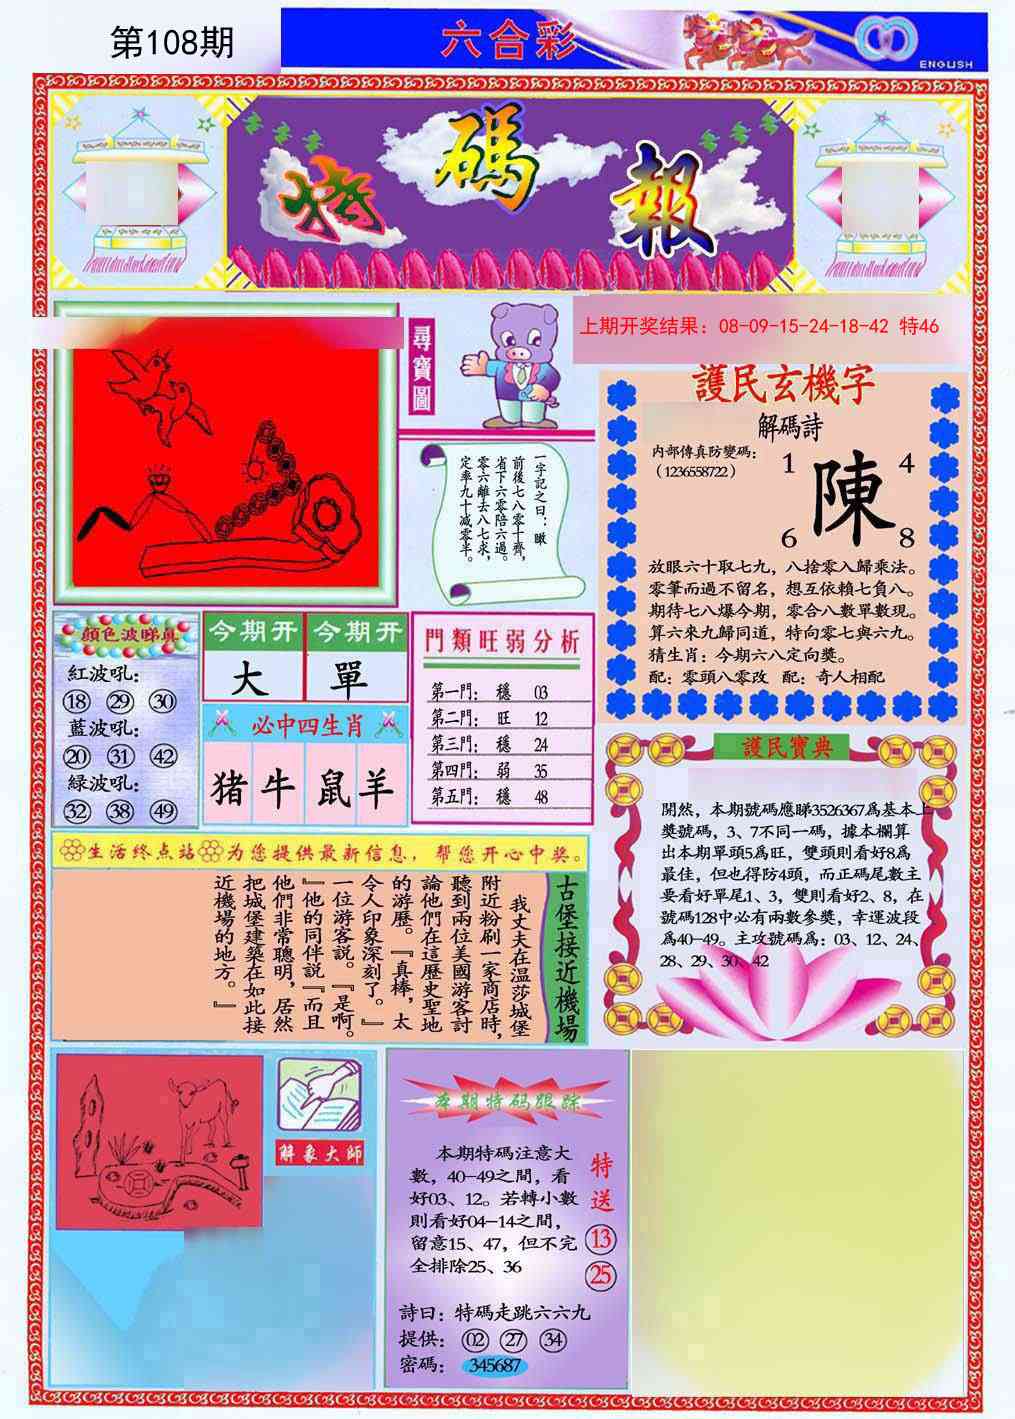 第108期
六合彩
ENGLISH
特碼報
上期开奖结果：08-09-15-24-18-42 特46
尋寶圖
一字記之曰：瞅
前後七八零十齊，
省下六零陪六過。
零六離去八七求，
定率九十减零半。
護民玄機字
解碼詩
内部傳真防變碼：
（1236558722）
1 4
陳
6 8
放眼六十取七九，八捨零入歸乘法。
零筆而過不留名，想互依賴七負八。
期待七八爆今期，零合八數單數現。
算六來九歸同道，特向零七與六九。
猜生肖：今期六八定向獎。
配：零頭八零改 配：奇人相配
顏色波睇真
紅波吼：
18 29 30
藍波吼：
20 31 42
緑波吼：
32 38 49
今期开 今期开
大 單
必中四生肖
猪 牛 鼠 羊
門類旺弱分析
第一門： 穩 03
第二門： 旺 12
第三門： 穩 24
第四門： 弱 35
第五門： 穩 48
護民寶典
開然，本期號碼應睇3526367爲基本上
獎號碼，3、7不同一碼，據本欄算
出本期單頭5爲旺，雙頭則看好8爲
最佳，但也得防4頭，而正碼尾數主
要看好單尾1、3，雙則看好2、8，在
號碼128中必有兩數參獎，幸運波段
爲40—49。主攻號碼爲：03、12、24、
28、29、30、42
生活终点站 为您提供最新信息，帮您开心中奖。
古堡接近機場
我丈夫在温莎城堡
附近粉刷一家商店時，
聽到兩位美國游客討
論他們在這歷史聖地
的游歷。『真棒，太
令人印象深刻了。』
一位游客説。『是啊。
『他的同伴説『而且
他們非常聰明，居然
把城堡建築在如此接
近機場的地方。』
解象大師
本期特码跟踪
本期特碼注意大
數，40—49之間，看
好03、12。若轉小數
則看好04—14之間，
留意15、47，但不完
全排除25、36
特送
13
25
詩曰：特碼走跳六六九
提供： 02 27 34
密碼： 345687